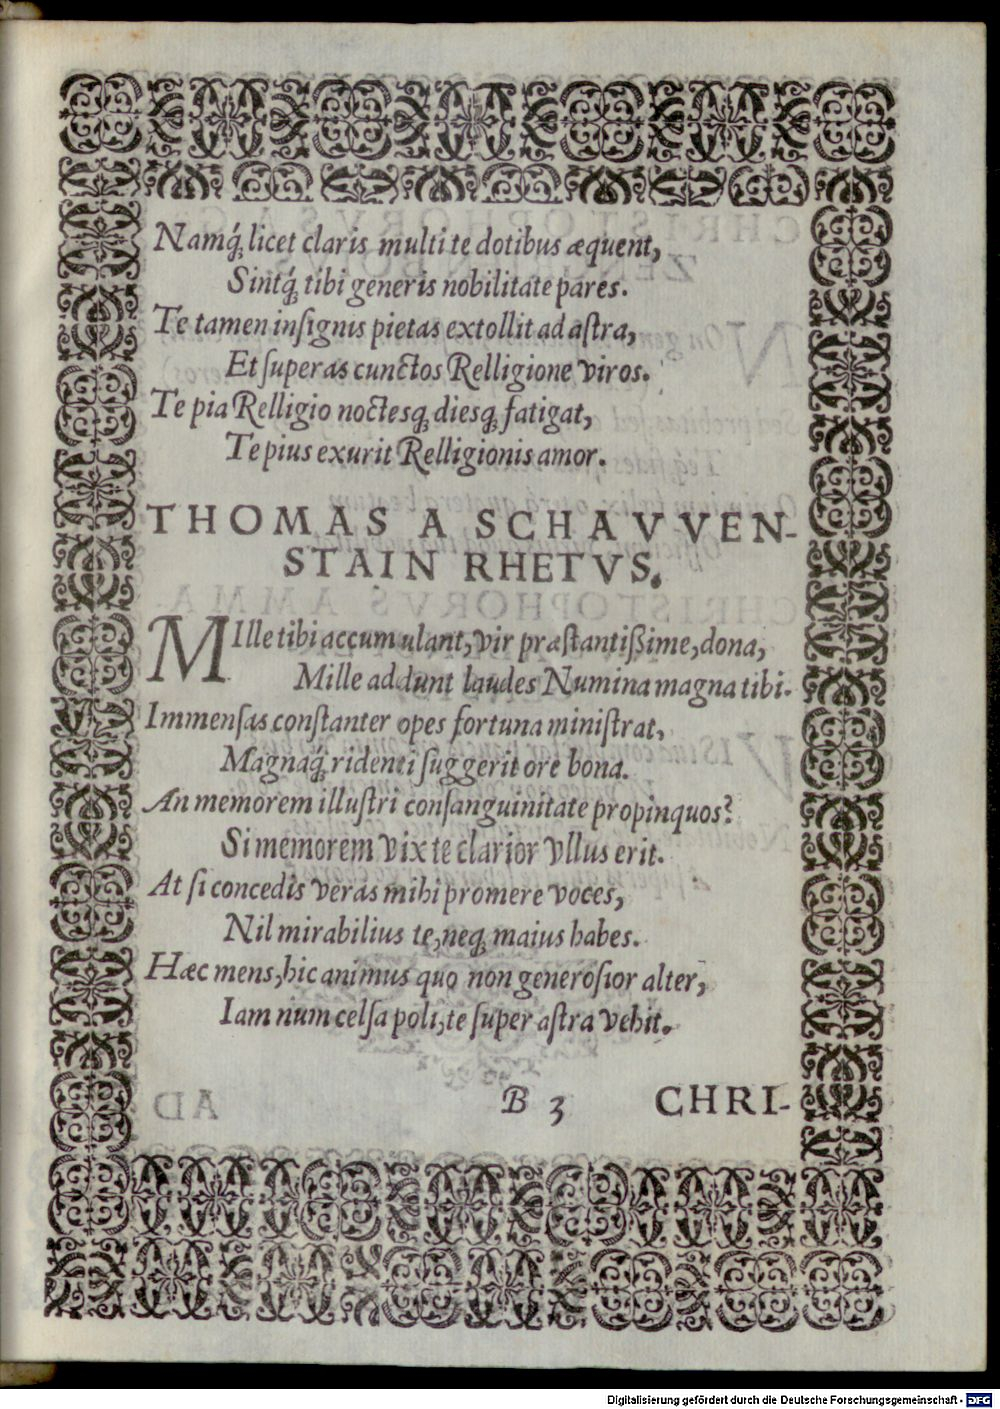 Namq́; licet claris multi te dotibus æquent,
Sintq́; tibi generis nobilitate pares.
Te tamen inſignis pietas extollit ad aſtra,
Et ſuperas cunctos Relligione viros.
Te pia Relligio noctesq; diesq; fatigat,
Te pius exurit Relligionis amor.
THOMAS A SCHAVVVEN-
STAIN RHETVS.
MIlle tibi accumulant, vir præſtantißime, dona,
Mille addunt laudes Numina magna tibi.
Immenſas conſtanter opes fortuna miniſtrat,
Magnaq́; ridenti ſuggerit ore bona.
An memorem illuſtri conſanguinitate propinquos?
Si memorem vix te clarior vllus erit.
At ſi concedis veras mihi promere voces,
Nil mirabilius te, neq; maius habes.
Hæc mens, hic animus quo non generoſior alter,
Iam nũm celſa poli, te ſuper aſtra vehit.
B 3 CHRI-
Digitalisierung gefördert durch die Deutsche Forschungsgemeinschaft - DFG